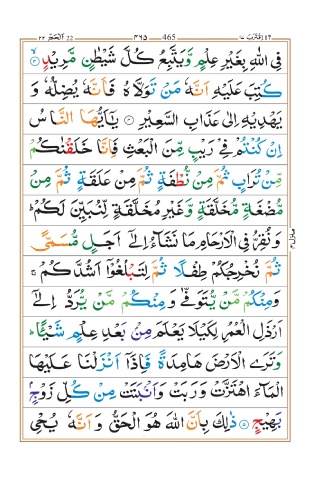 ٢٢ اَلْحَجّ 22 ٣٦٥ 465 اِقْتَرَبَ ١٧
فِى اللّٰهِ بِغَيْرِ عِلْمٍ وَّيَتَّبِعُ كُلَّ شَيْطٰنٍ مَّرِيْدٍ ۙ‏ ٣
كُتِبَ عَلَيْهِ اَنَّهٗ مَنْ تَوَلَّاهُ فَاَنَّهٗ يُضِلُّهٗ وَ
يَهْدِيْهِ اِلٰى عَذَابِ السَّعِيْرِ ٤ يٰۤاَيُّهَا النَّاسُ
اِنْ كُنْتُمْ فِىْ رَيْبٍ مِّنَ الْبَعْثِ فَاِنَّا خَلَقْنٰكُمْ
مِّنْ تُرَابٍ ثُمَّ مِنْ نُّطْفَةٍ ثُمَّ مِنْ عَلَقَةٍ ثُمَّ مِنْ
مُّضْغَةٍ مُّخَلَّقَةٍ وَّغَيْرِ مُخَلَّقَةٍ لِّنُبَيِّنَ لَكُمْ ؕ
وَ نُقِرُّ فِى الْاَرْحَامِ مَا نَشَآءُ اِلٰٓى اَجَلٍ مُّسَمًّى
ثُمَّ نُخْرِجُكُمْ طِفْلًا ثُمَّ لِتَبْلُغُوْۤا اَشُدَّكُمْ ۚ
وَمِنْكُمْ مَّنْ يُّتَوَفّٰى وَمِنْكُمْ مَّنْ يُّرَدُّ اِلٰٓى
اَرْذَلِ الْعُمُرِ لِكَيْلَا يَعْلَمَ مِنْۢ بَعْدِ عِلْمٍ شَيْئًا ؕ
وَتَرَى الْاَرْضَ هَامِدَةً فَاِذَاۤ اَنْزَلْنَا عَلَيْهَا
الْمَآءَ اهْتَزَّتْ وَرَبَتْ وَاَنْۢبَتَتْ مِنْ كُلِّ زَوْجٍۢ
بَهِيْجٍ ٥ ذٰلِكَ بِاَنَّ اللّٰهَ هُوَ الْحَقُّ وَ اَنَّهٗ يُحْىِ